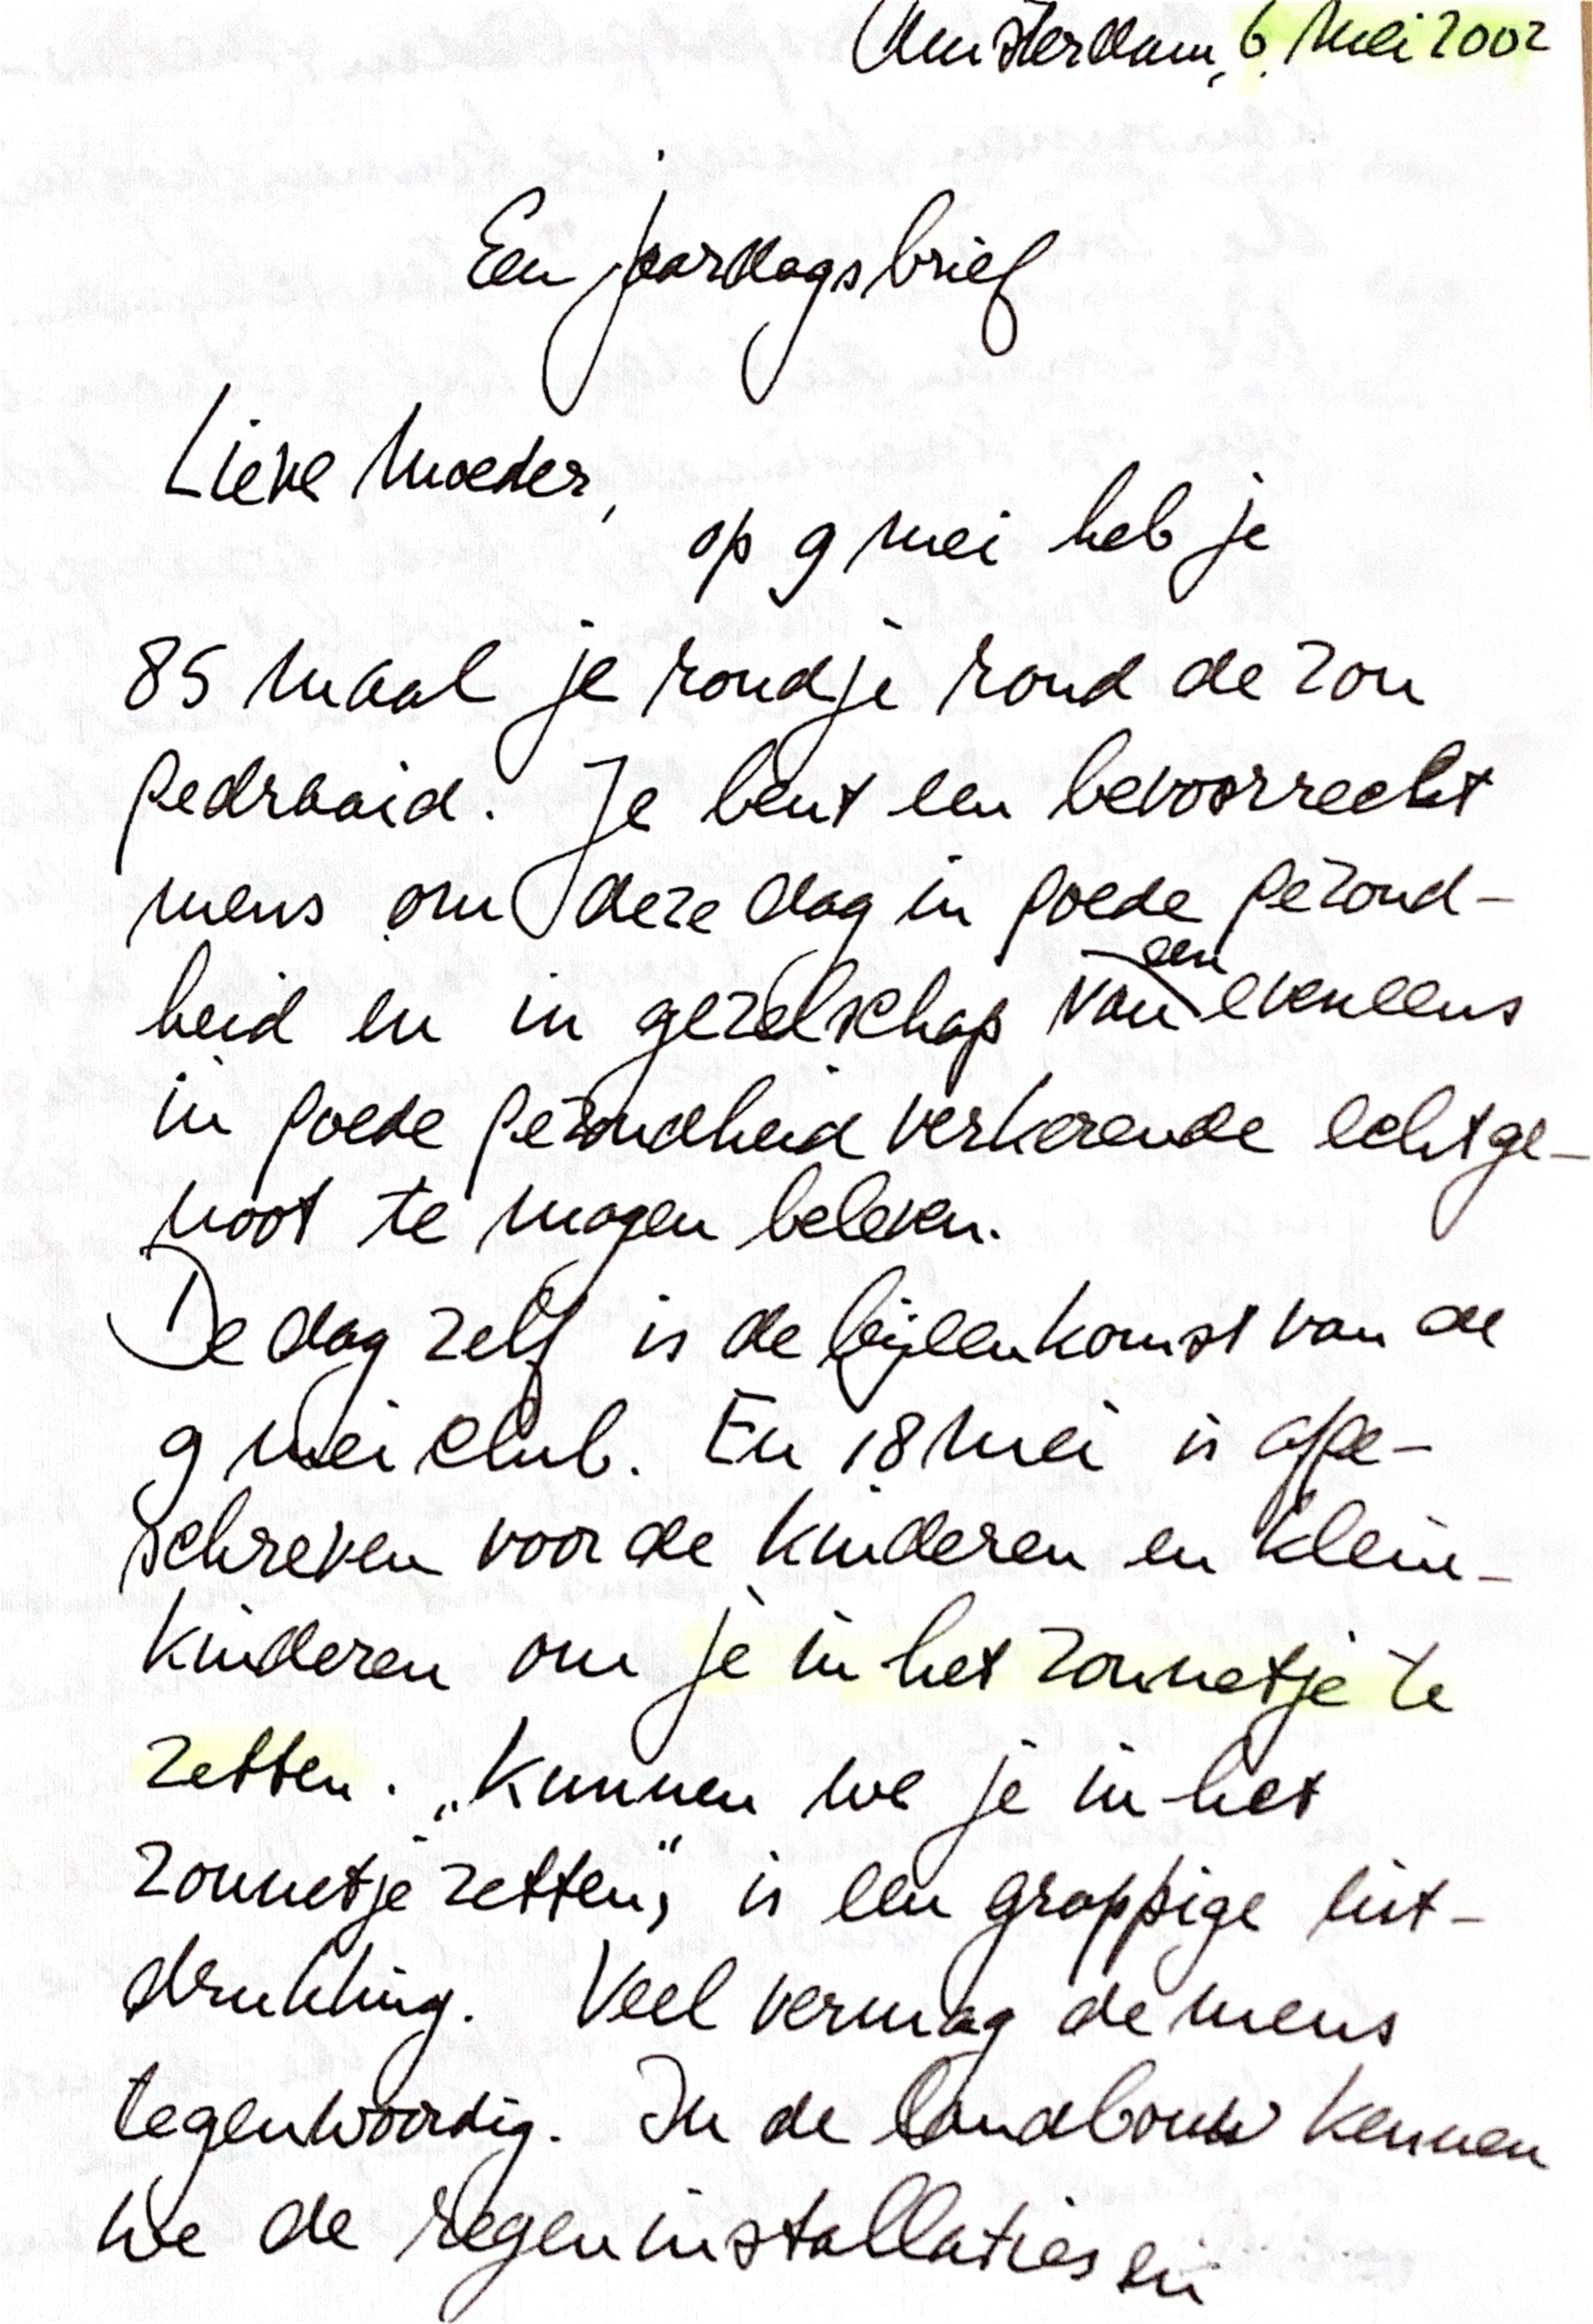 Amsterdam, 6 Mei 2002
Een jaardagsbrief
Lieve Moeder,
op 9 mei heb je
85 maal je rondje rond de zon
gedraaid. Je bent een bevoorrecht
mens om deze dag in goede gezond-
een
heid en in gezelschap van eveneens
in goede gezondheid verkerende echtge-
noot te mogen beleven.
De dag zelf is de bijeenkomst van de
9 mei club. En 18 mei is afge-
schreven voor de kinderen en klein-
kinderen om je in het zonnetje te
zetten. „Kunnen we je in het
zonnetje zetten", is een grappige uit-
drukking. Veel vermag de mens
tegenwoordig. In de landbouw kennen
we de regeninstallaties en